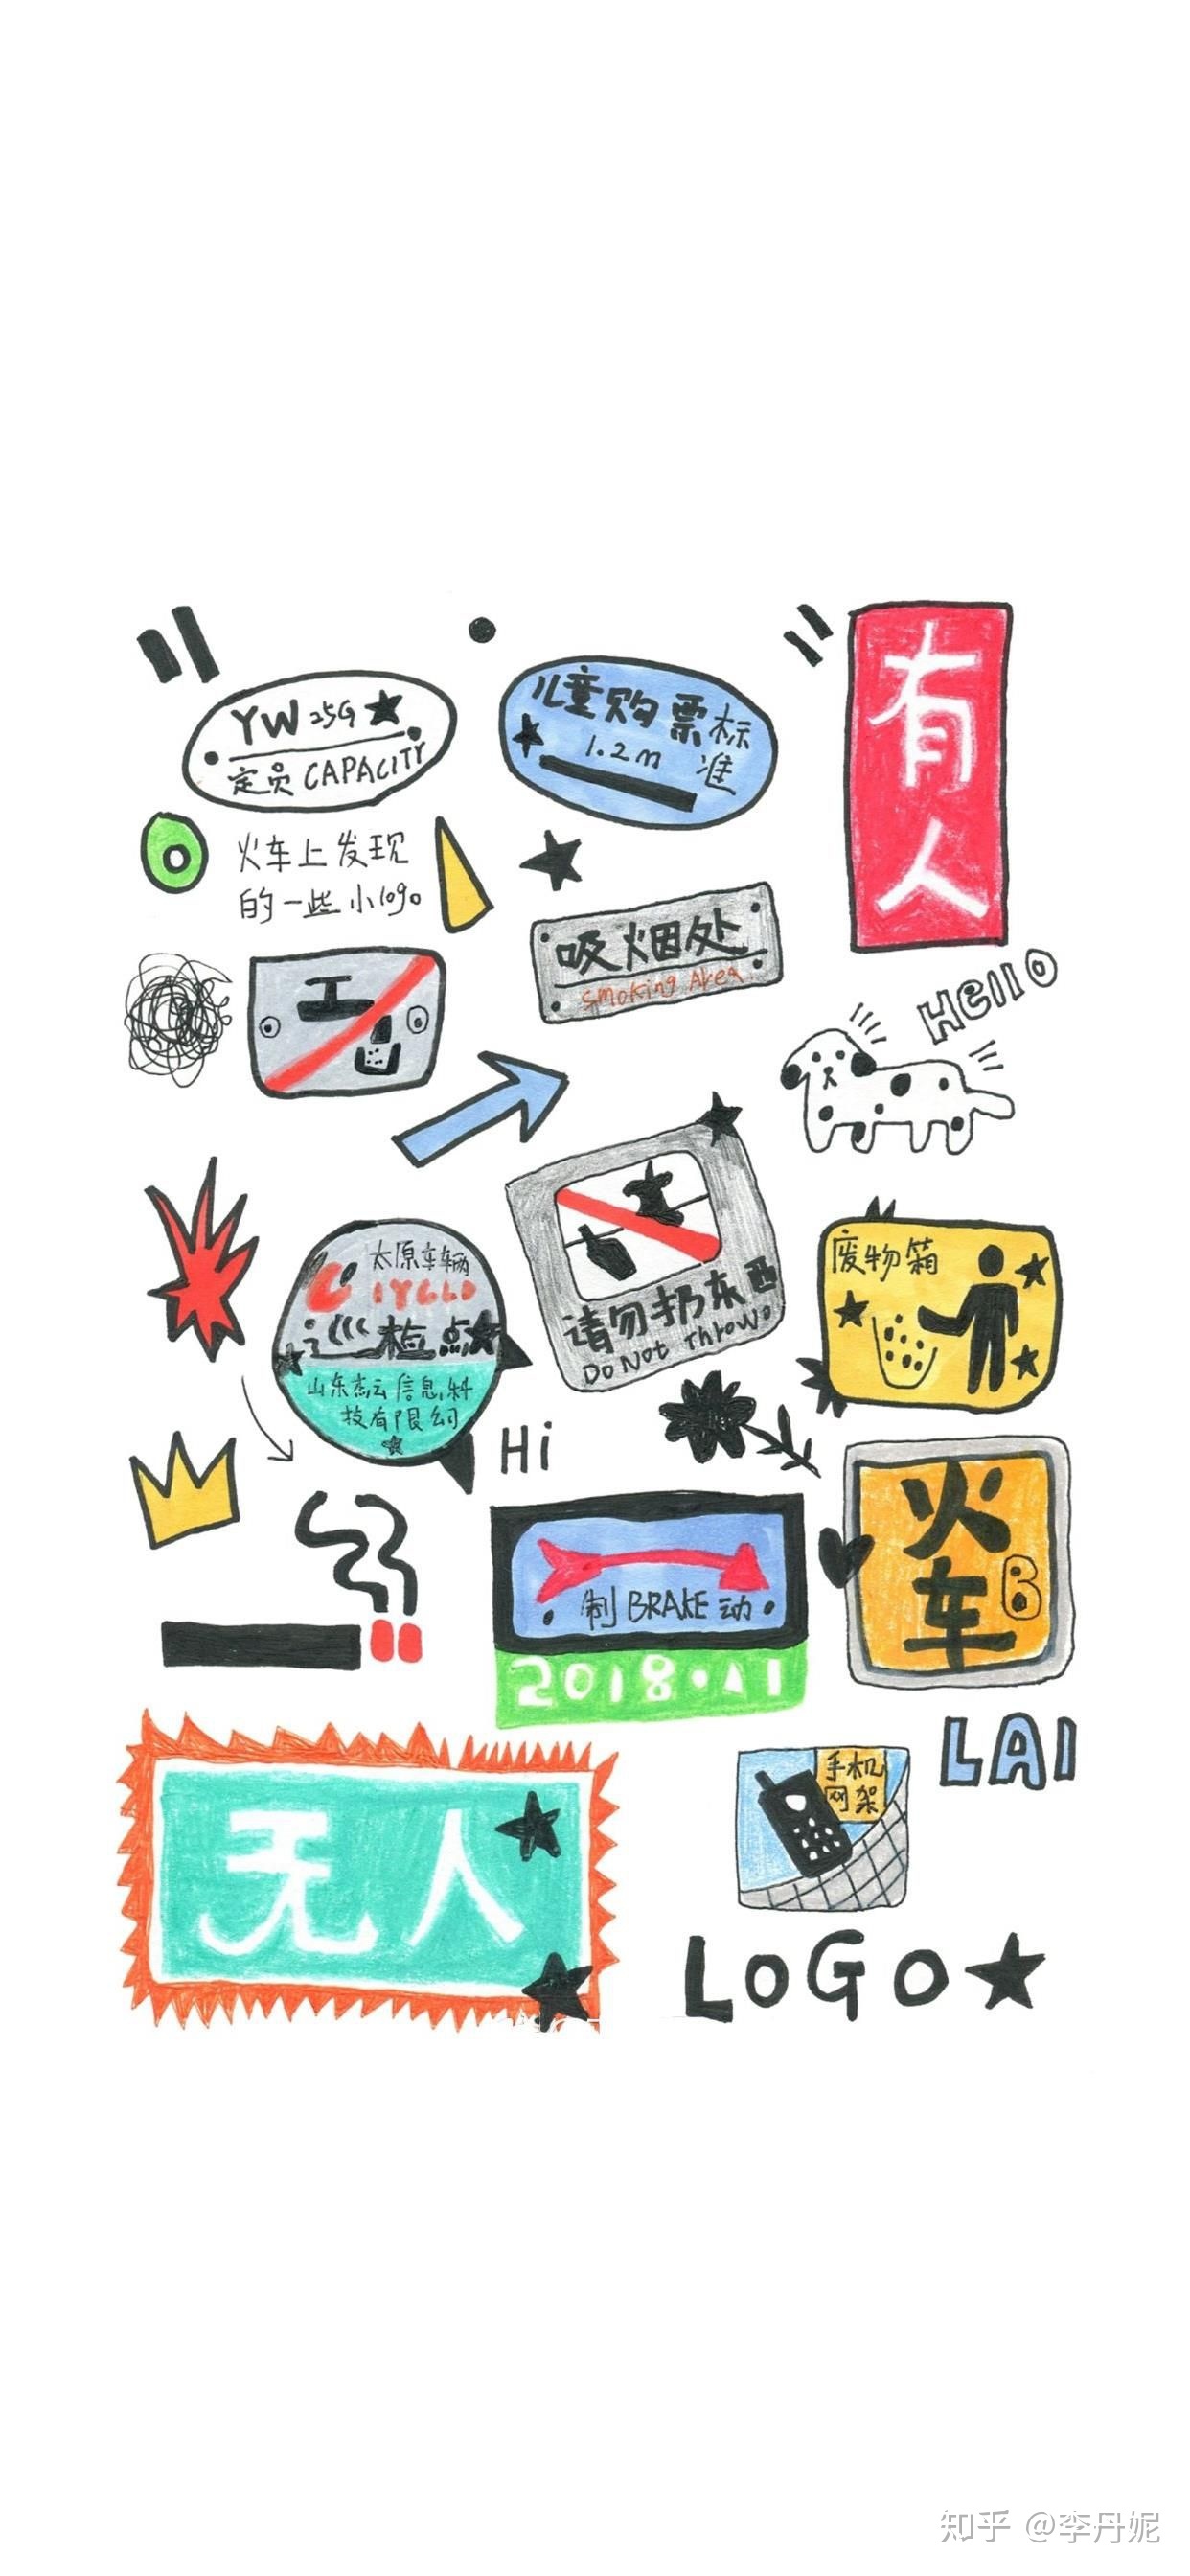 有人
YW 25G
定员 CAPACITY
儿童购票标准
1.2m
火车上发现
的一些小logo
吸烟处
Smoking Area
Hello
太原车辆
巡检点
山东杰云信息科
技有限公司
请勿扔东西
Do Not Throwo
废物箱
Hi
制 BRAKE 动
2018·11
火车
B
无人
手机
网架
LAI
LOGO
知乎 @李丹妮